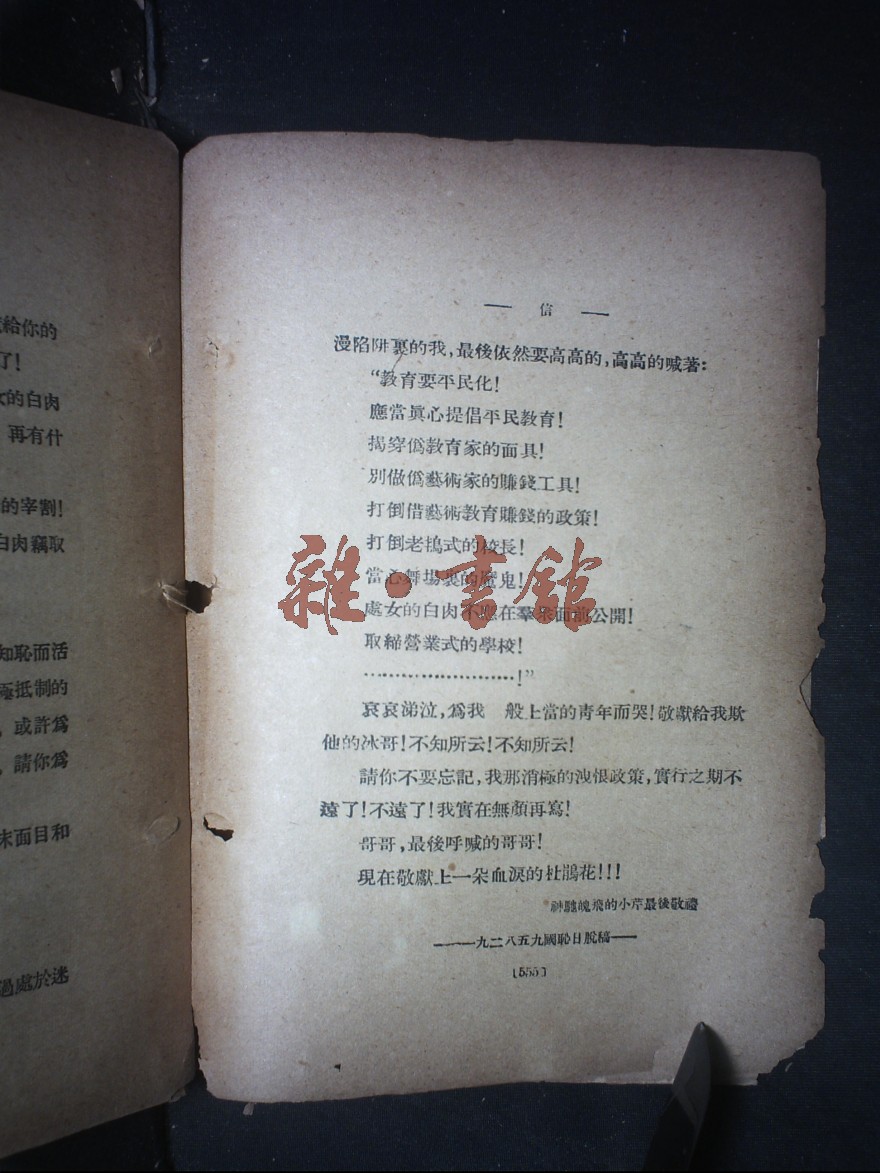 給你的
了!
女的白肉
再有什
的宰割!
白肉竊取
知恥而活
極抵制的
，或許爲
，請你爲
末面目和
過處於迷
── 信 ──
漫陷阱裏的我，最後依然要高高的，高高的喊著：
“教育要平民化！
應當眞心提倡平民教育！
揭穿僞教育家的面具！
別做僞藝術家的賺錢工具！
打倒借藝術教育賺錢的政策！
打倒老鴇式的校長！
當心舞場裏的魔鬼！
處女的白肉不應在羣衆面前公開！
取締營業式的學校！
……………………！”
哀哀涕泣，爲我 般上當的青年而哭！敬獻給我欺
他的冰哥！不知所云！不知所云！
請你不要忘記，我那消極的洩恨政策，實行之期不
遠了！不遠了！我實在無顏再寫！
哥哥，最後呼喊的哥哥！
現在敬獻上一朵血淚的杜鵑花！！！
神魂魄飛的小芹最後敬禮
──一九二八五九國恥日脫稿──
〔555〕
雜·書館